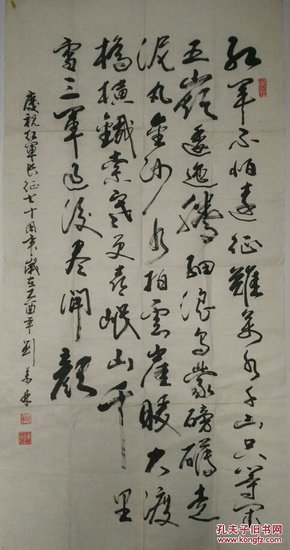 紅軍不怕遠征難萬水千山只等閑
五嶺逶迤騰細浪烏蒙磅礴走
泥丸金沙水拍雲崖暖大渡
橋橫鐵索寒更喜岷山千里
雪三軍過後盡開顏
慶祝紅軍長征七十周年歲在乙酉年劉
孔夫子旧书网
kongfz.com